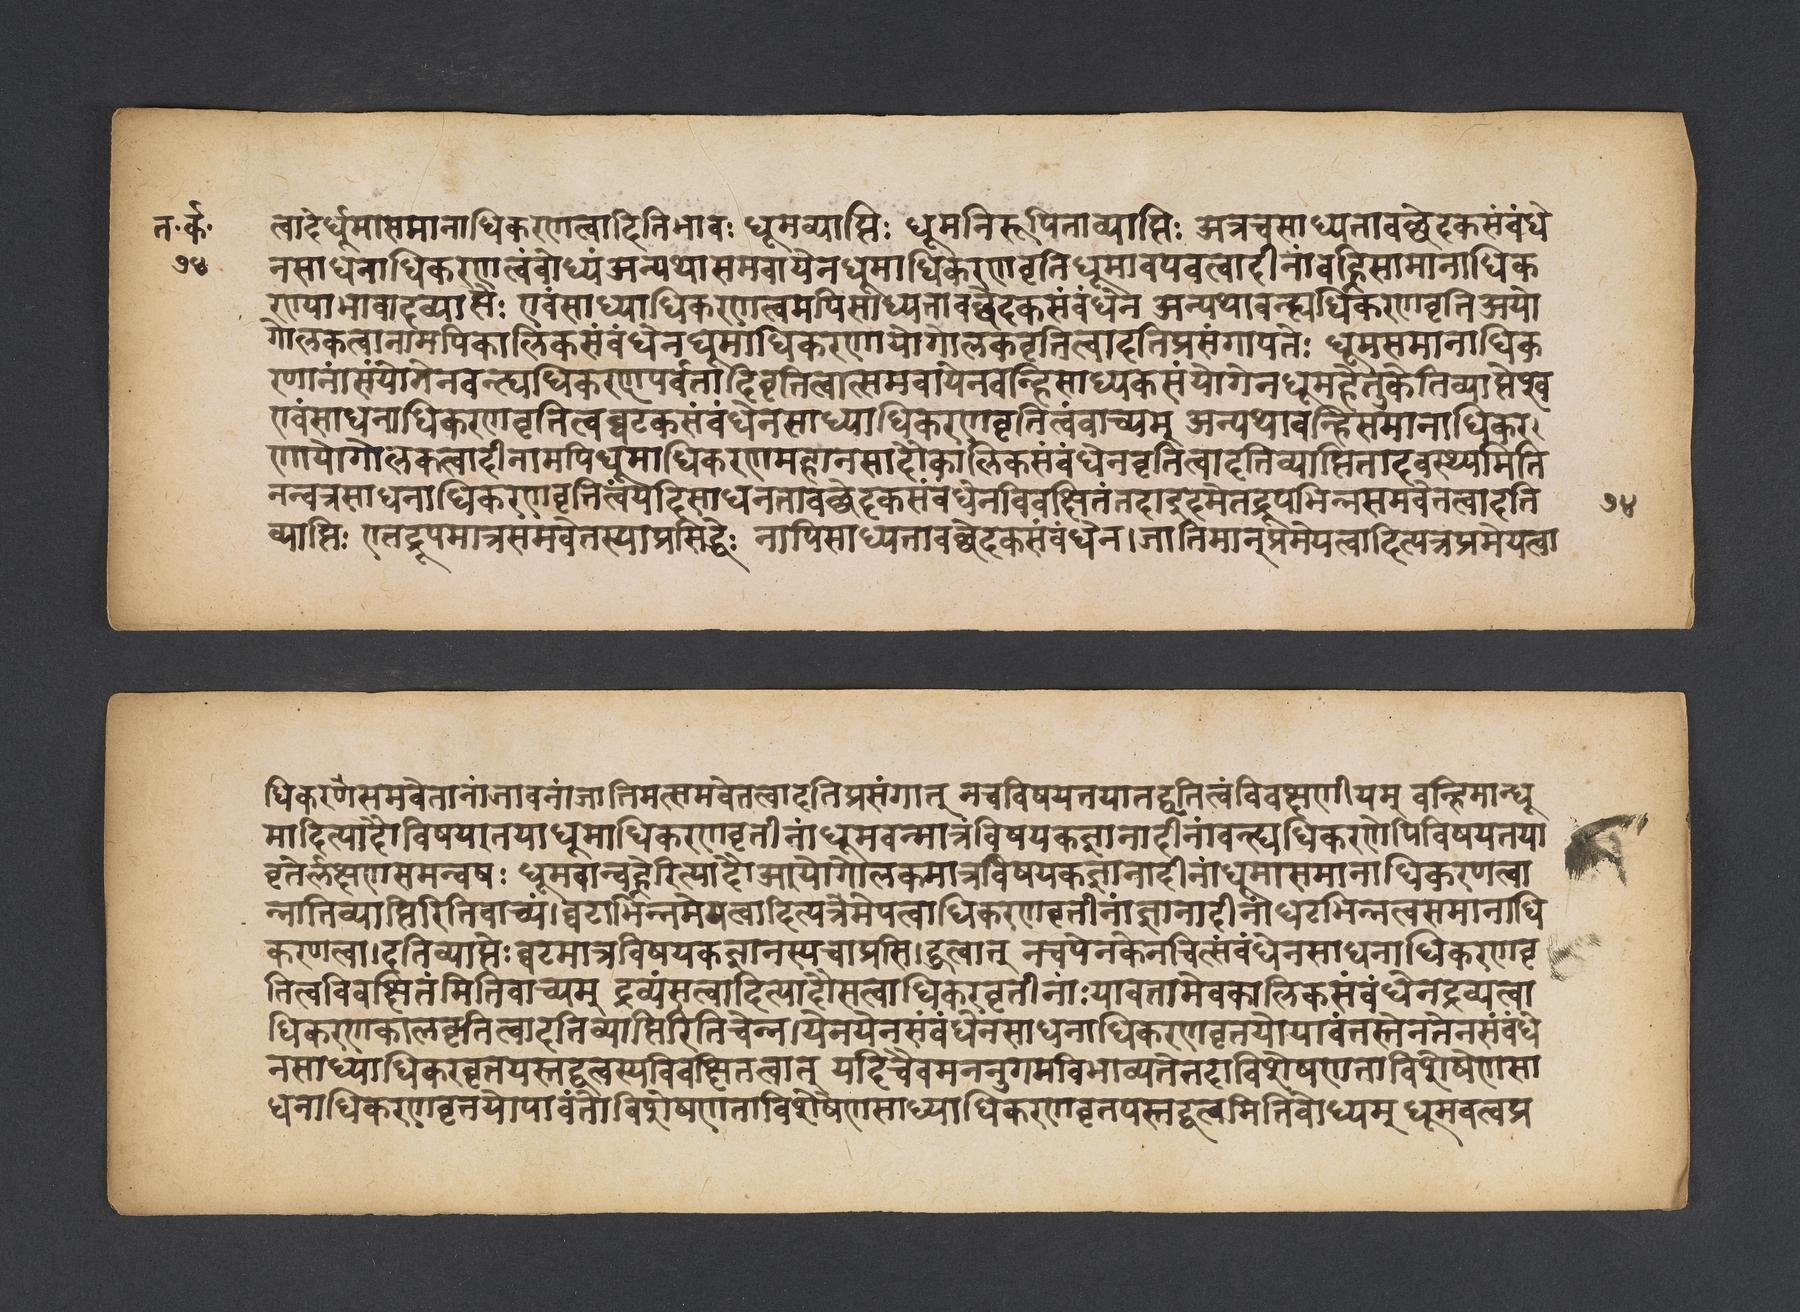 त॰र्क॰
७४
त्वादेर्धूमासमानाधिकरणत्वादितिभावः धूमव्याप्तिः धूमनिरूपिताव्याप्तिः अत्रचसाध्यतावच्छेदकसंबंधे
नसाधनाधिकरणत्वंबोध्यंअन्यथासमवायेनधूमाधिकरणवृत्तिधूमावयवत्वादीनांवह्निसामानाधिक
रण्याभावादव्याप्तेः एवंसाध्याधिकरणत्वमपिसाध्यतावछेदकसंबंधेन अन्यथावन्ह्यधिकरणवृत्तिअयो
गोलकत्वानामपिकालिकसंबंधेनधूमाधिकरणायोगोलकवृत्तित्वादतिप्रसंगापत्तेः धूमसमानाधिक
रणानांसंयोगेनवन्ह्यधिकरणपर्वतादिवृत्तित्वात्समवायेनवन्हिसाध्यकेसंयोगेनधूमहेतुकेतिव्याप्तेश्च
एवंसाधनाधिकरणवृत्तित्वघटकसंबंधेनसाध्याधिकरणवृत्तित्वंवाच्यम् अन्यथावन्हिसमानाधिकर
णायोगोलकत्वादीनामपिधूमाधिकरणमहानसादौकालिकसंबंधेनवृत्तित्वादतिव्याप्तितादवस्थ्यमिति
नन्वत्रसाधनाधिकरणवृत्तित्वंयदिसाधनतावच्छेदकसंबंधेनविवक्षितंतदाइदमेतद्रूपभिन्नसमवेतत्वादति
व्याप्तिः एतद्रूपमात्रसंमवेतस्याप्रसिद्धेः नापिसाध्यतावच्छेदकसंबंधेन।जातिमान्प्रमेयत्वादित्यत्रप्रमेयत्वा
७४
धिकरणेसमवेतानांजावनांजातिमत्समवेतत्वादतिप्रसंगात् नचविषयतयातद्वृत्तित्वंविवक्षणीयम् वन्हिमान्धू
मादित्यादौविषयातयाधूमाधिकरणवृत्तीनांधूमवन्मात्रंविषयकज्ञानादीनांवन्ह्यधिकरणेपिविषयतया
वृत्तेर्लक्षणसमन्वषः धूमवान्वह्नेरित्यादौआयोगोलकमात्रविषयकज्ञानादीनांधूमासमानाधिकरणत्वा
न्नातिव्याप्तिरितिवाच्यं।घटाभिन्नमेयत्वादित्यत्रैमेयत्वाधिकरणवृत्तीनांज्ञानादीनांघटभिन्नत्वसमानाधि
करणत्वा।दतिव्याप्तेःघटमात्रविषयकज्ञानस्यचाप्रसि।द्धत्वात् नचयेनकेनचित्संबंधेनसाधनाधिकरणवृ
त्तित्वविवक्षितंमितिवाच्यम् द्रव्यंसत्वादित्यादौसत्वाधिकरवृत्तीनाःयावतामेवकालिकसंबंधेनद्रव्यत्वा
धिकरणकालवृत्तित्वादतिव्याप्तिरितिचेन्न।येनयेनसंबंधेनसाधनाधिकरणवृत्तयोयावंतस्तेनतेनसंबंधे
नसाध्याधिकरवृत्तयस्तद्वत्वस्यविवक्षितत्वात् यदिचैवमननुगमविभाव्यतेतदाविशेषणताविशेषेणसा
धनाधिकरणवृत्तयोयावंतोविशेषणताविशेषेणसाध्याधिकरणवृत्तयस्तद्वत्वमितिबोध्यम् धूमवत्वप्र